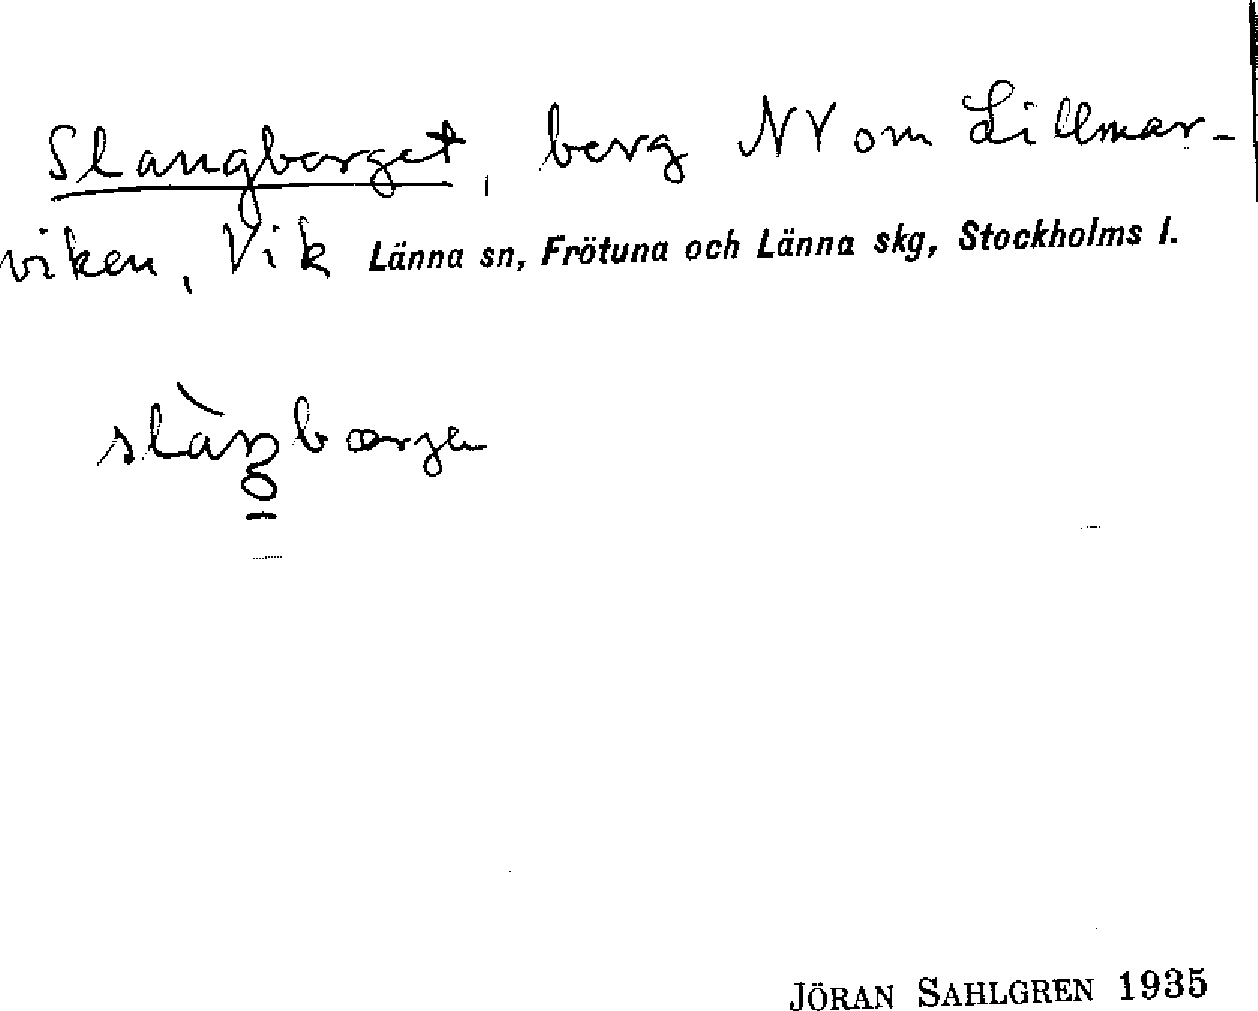 Slangberget, berg NV om Lillmar-
viken, Vik Länna sn, Frötuna och Länna skg, Stockholms l.
slàŋbærjə
JÖRAN SAHLGREN 1935